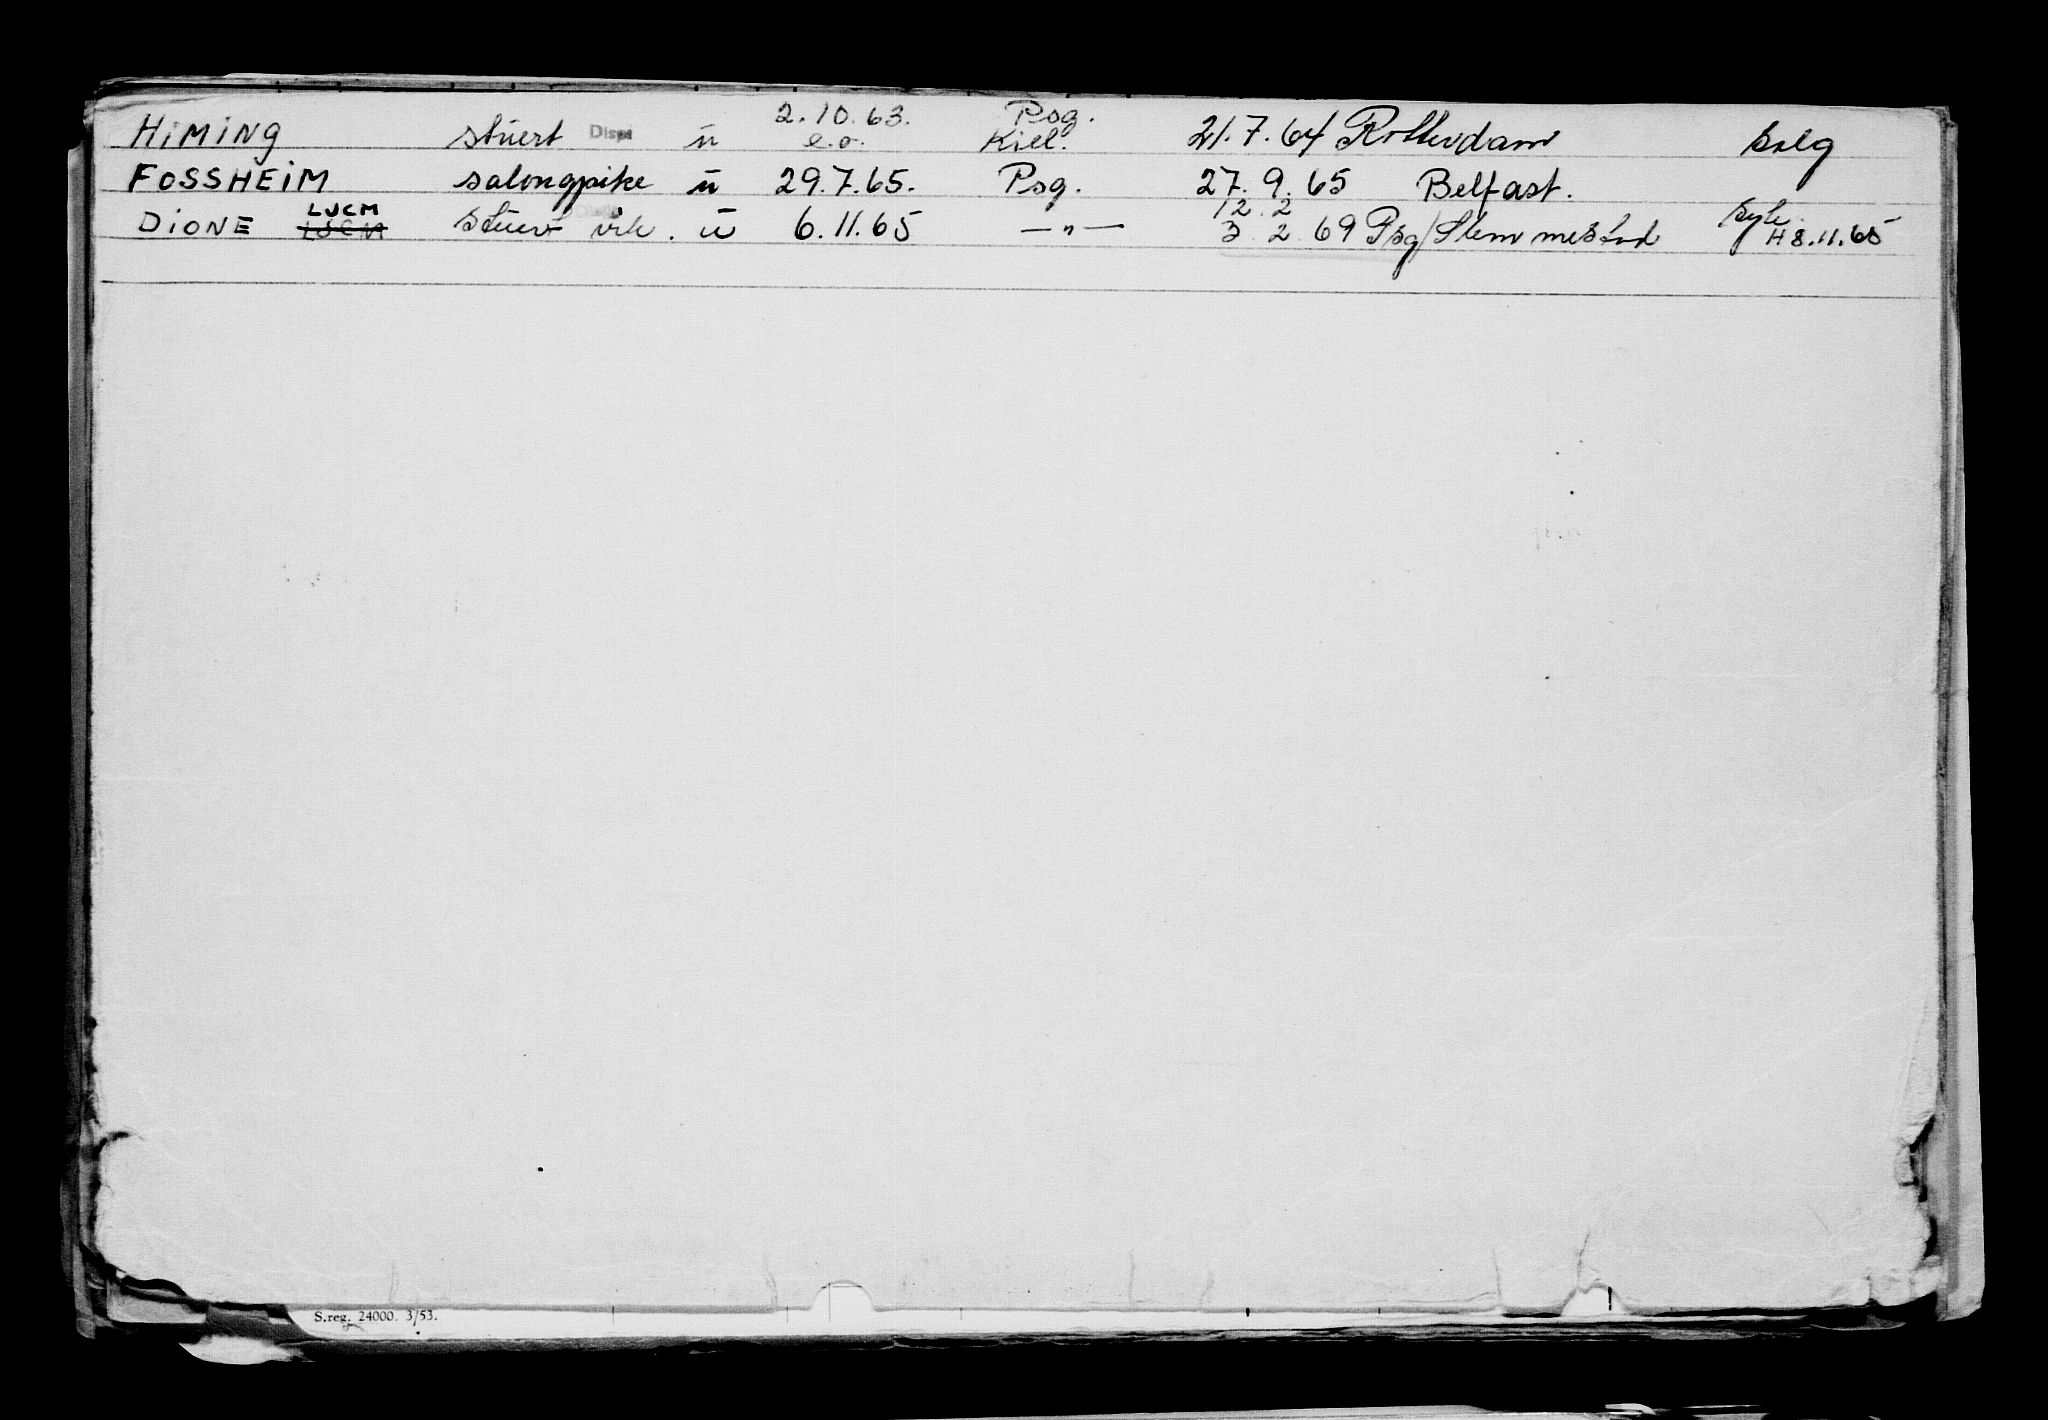 2.10.63. Psg.
HiMiNG stuert Disp u e.o. Kiel. 21.7.64 Rotterdam salg
FOSSHEiM salongpike u 29.7.65. Psg. 27.9.65 Belfast.
LJCM 12.2
DiONE LJCM stuert vik. u 6.11.65 —"— 3.2.69 Psg/Slemmestad syk. H 8.11.65
S.reg. 24000. 3/53.